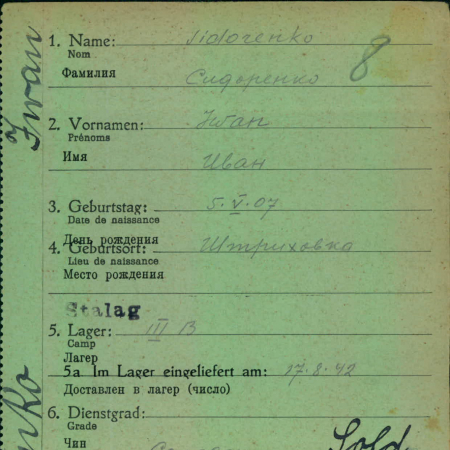 1. Name: Sidorenko
Nom
Фамилия Сидоренко
8
2. Vornamen: Iwan
Prénoms
Имя Иван
3. Geburtstag: 5.V.07
Date de naissance
День рождения
4. Geburtsort: Штриховка
Lieu de naissance
Место рождения
Stalag
5. Lager: III B
Camp
Лагер
5a Im Lager eingeliefert am: 17.8.42
Доставлен в лагер (число)
6. Dienstgrad:
Grade
Чин
Sold.
Iwan